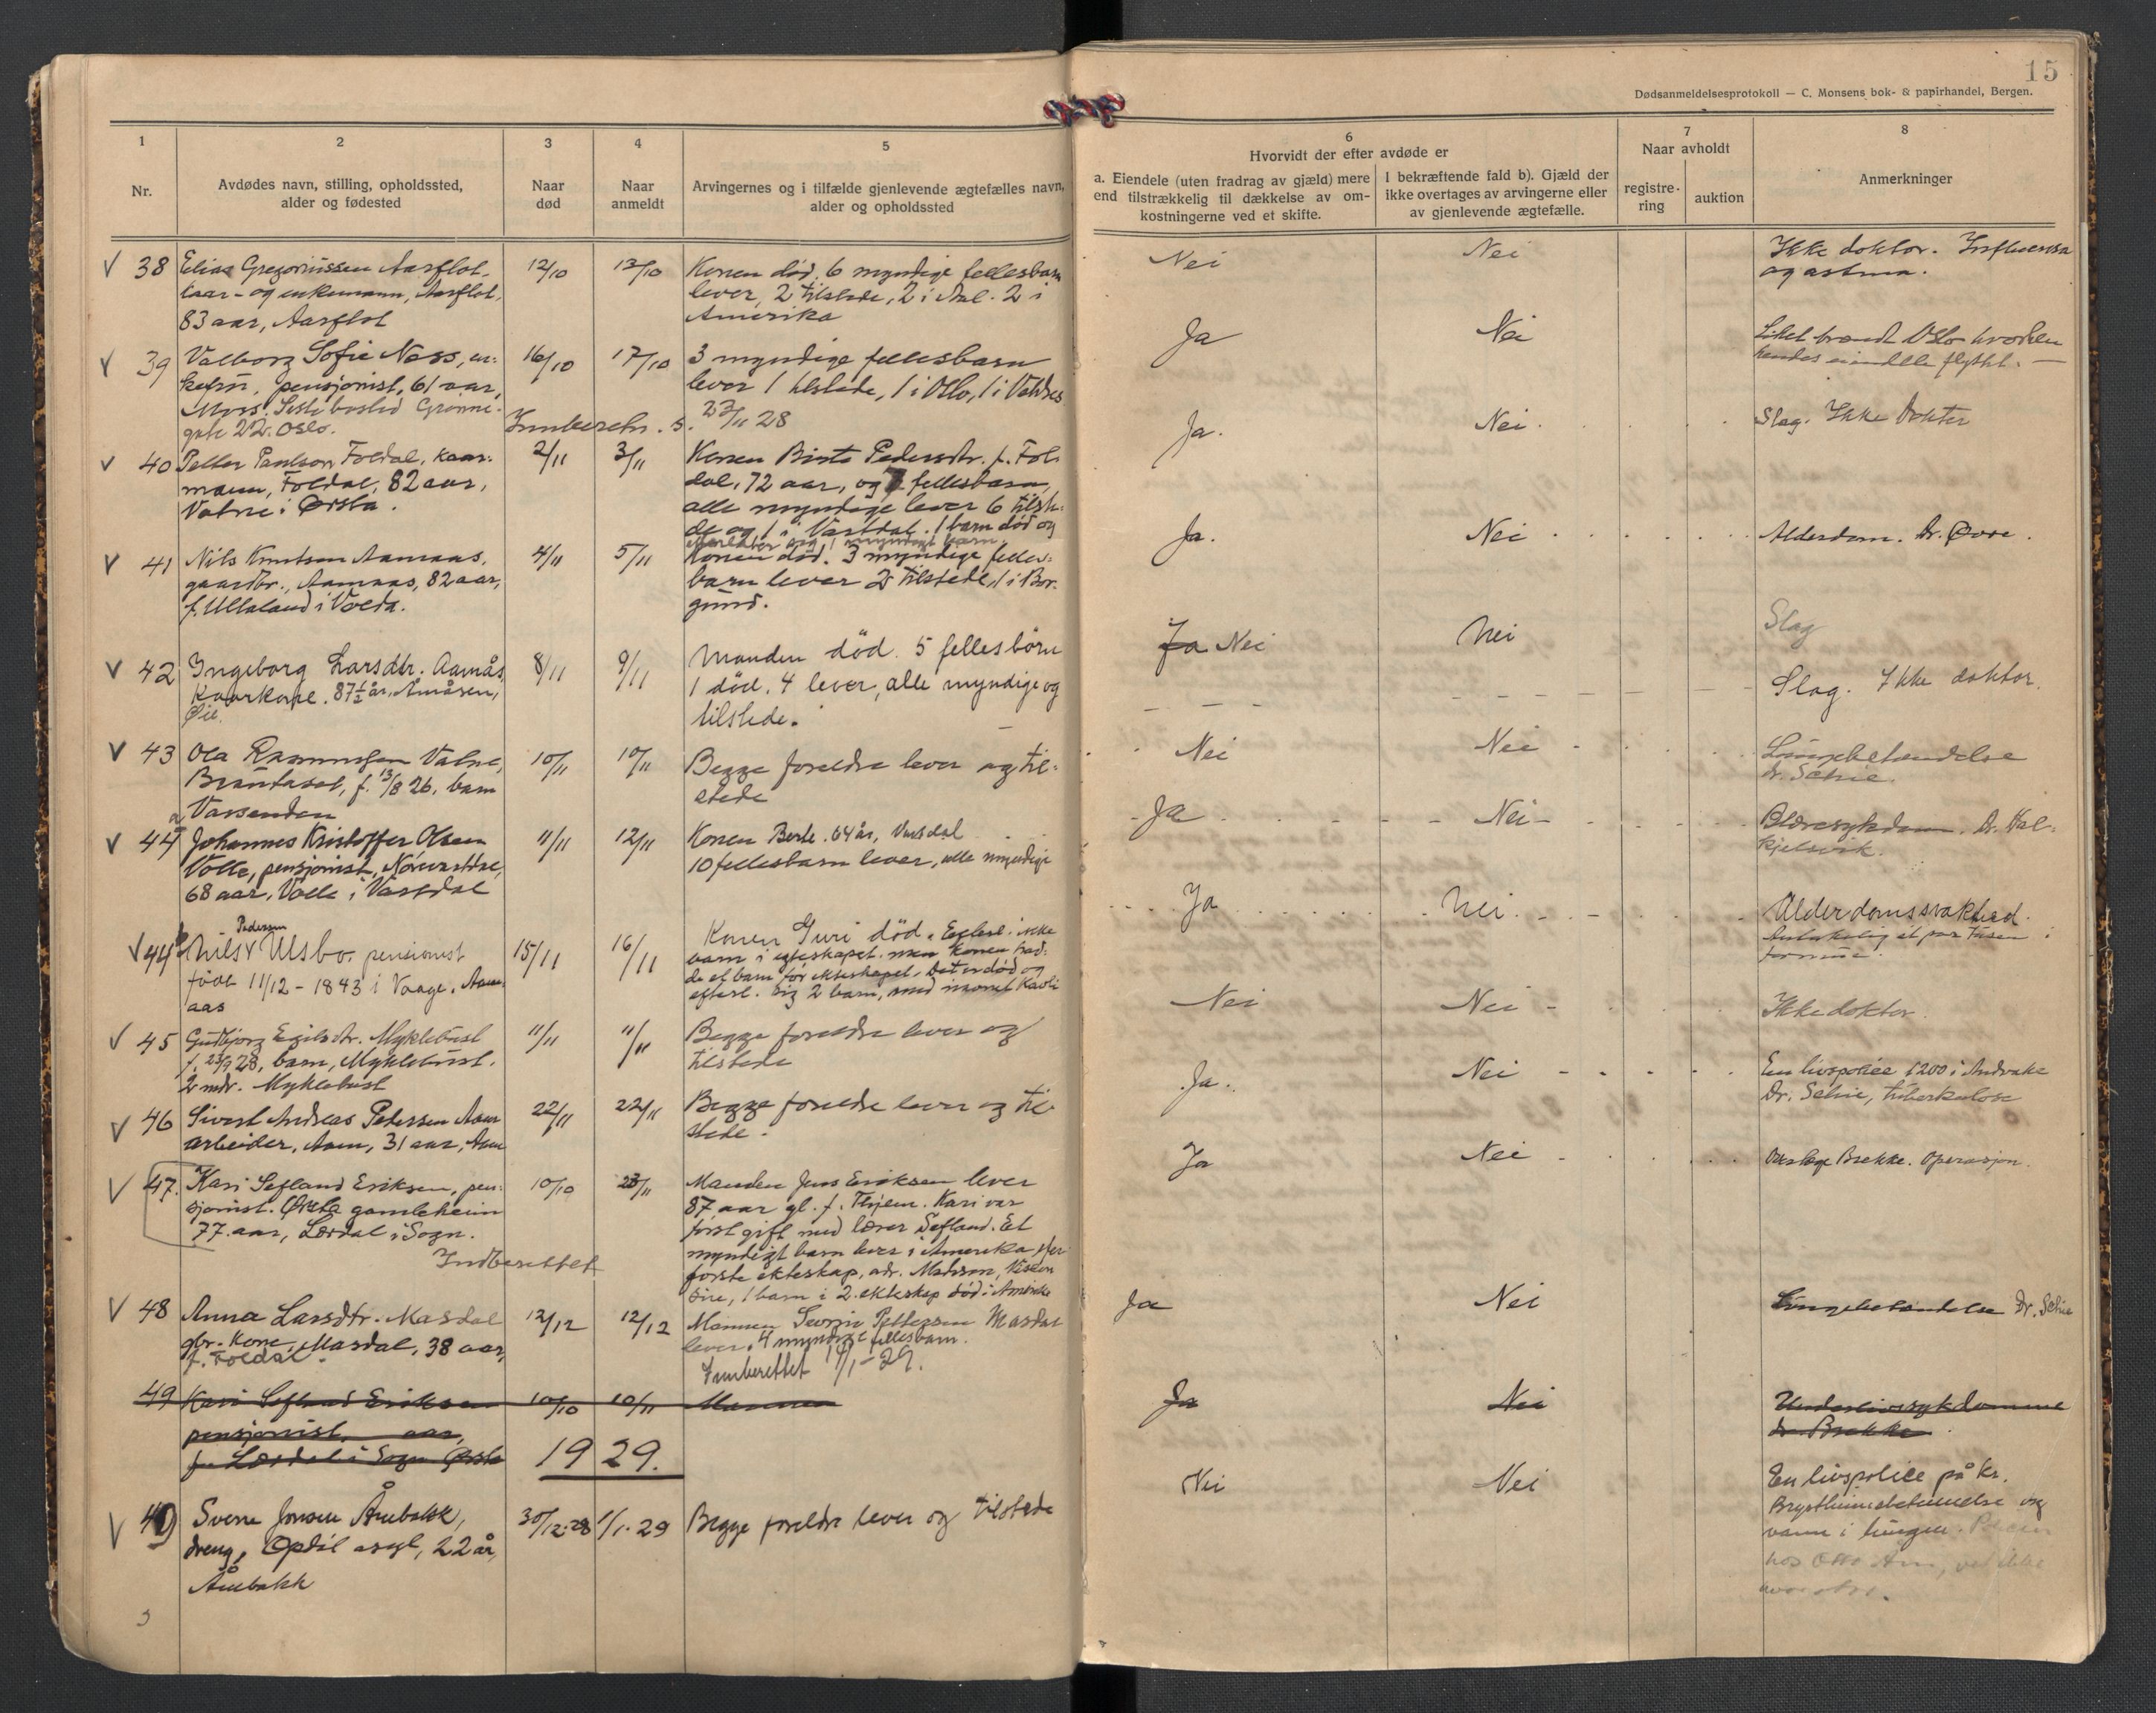 15
Dødsanmeldelsesprotokoll — C. Monsens bok- & papirhandel, Bergen.
1
2
3
4
5
6
7
8
Nr.
Avdødes navn, stilling, opholdssted,
alder og fødested
Naar
død
Naar
anmeldt
Arvingernes og i tilfælde gjenlevende ægtefælles navn,
alder og opholdssted
Hvorvidt der efter avdøde er
a. Eiendele (uten fradrag av gjæld) mere
end tilstrækkelig til dækkelse av om-
kostningerne ved et skifte.
I bekræftende fald b). Gjæld der
ikke overtages av arvingerne eller
av gjenlevende ægtefælle.
Naar avholdt
registre-
ring
auktion
Anmerkninger
V 38 Elias Gregoriussen Aarflot,
kaar- og enkemann, Aarflot,
83 aar, Aarflot
12/10
13/10
Konen død. 6 myndige fellesbarn
lever, 2 tilstede, 2 i Aal. 2 i
Amerika
Nei
Nei
Ikke doktor. Influensa
og astma.
V 39 Valborg Sofie Ness, en-
kefru, pensjonist, 61 aar,
Moss. Siste bosted Grønne-
gate 22. Oslo.
16/10
17/10
3 myndige fellesbarn
lever 1 tilstede, 1 i Oslo, 1 i Valdres
Innberettn. s. 23/11 28
Ja
Nei
Liket brændt Oslo hvorhen
hendes eiendele flyttet. —
V 40 Petter Paulson Foldal, kaar-
mann, Foldal, 82 aar,
Vatne i Ørsta.
2/11
3/11
Konen Birte Pedersdtr. f. Fol-
dal, 72 aar, og 7 fellesbarn,
alle myndige lever 6 tilste-
de og 1 i Vartdal. 1 barn død og
efterlater sig 1 myndigt barn.
Ja.
Nei.
Slag. Ikke Dokter
V 41 Nils Knutson Aamaas,
gaardbr., Aamaas, 82 aar,
f. Ullaland i Volda.
4/11
5/11
Konen død. 3 myndige felles-
barn lever 2 tilstede, 1 i Bor-
gund.
Ja.
Nei
Alderdom. Dr. Øvre.
V 42 Ingeborg Larsdtr. Aamås,
Kaarkone. 87½ år, Åmåsen,
Øie.
8/11
9/11
Manden død. 5 fellesbörn
1 död. 4 lever, alle myndige og
tilstede.
Ja Nei
Nei
Slag
Slag. Ikke doktor.
V 43 Ola Rasmussen Vatne,
f. 13/8 26, barn
Vassenden
10/11
10/11
Begge foreldre lever og til-
stede
Nei
Nei
Lungebetendelse
dr. Schie.
V 44a Johannes Kristoffer Olsen
Volle, pensjonist,
68 aar, Volle i Vartdal
11/11
12/11
Konen Berte. 64 år, Vartdal
10 fellesbarn lever, alle myndige
Ja
Nei
Blæresykdom. Dr. Kal-
kjelsvik.
V 44b Nils Pedersen Ulsbo. pensionist
född 11/12 - 1843 i Vaage, Aam-
aas
15/11
16/11
Konen Guri død. Efterl. ikke
barn i egteskapet. men konen had-
de et barn før ekteskapet. Det er død og
efterl. sig 2 barn, med navnet Kavli
Ja
Nei.
Alderdomssvakhed.
Antakelig et par tusen i
formue.
V 45 Gudbjørg Eigilsdtr. Myklebust
f. 23/9 28, barn, Myklebust.
2 mdr. Myklebust
11/11
11/11
Begge foreldre lever og
tilstede
Nei
Nei
Ikke doktor.
V 46 Sivert Andreas Petersen Aam
arbeider, Aam, 31 aar, Aam
22/11
22/11
Begge foreldre lever og til-
stede.
Ja.
Nei
En livspolice 1200 i Andvake
Dr. Schie, tuberkulose
V 47. Kari Sefland Eriksen, pen-
sjonist. Ørsta gamleheim
77. aar, Lærdal i Sogn.
Indberettet
10/10
23/11
Manden Jens Eriksen lever
87 aar gl. f. Kari var
først gift med lærer Sefland. Et
myndigt barn lever i Amerika efter
første ekteskap, adr. Madison, Viscon-
sin, 1 barn i 2. ekteskap død i Amerika
Ja
Nei
Brekke. Operasjon.
V 48 Anna Larsdtr. Masdal
gbr. kone, Masdal, 38 aar,
f. Foldal.
12/12
12/12
Mannen Pettersen Masdal
lever. 4 myndige fellesbarn.
Innberettet 19/1-29.
Ja
Nei
Lungebetendelse Dr. Schie
49 Kari Sefland Eriksen
pensjonist, aar,
f. Lærdal i Sogn Ørsta
10/10
10/11
Mannen
Ja
Nei
Underlivssykdomme
dr. Brekke.
1929.
V 49 Sverre Jonsen Åmbakk,
dreng, Opdøl asyl, 22 år,
Åmbakk
30/12-28
1/1-29
Begge foreldre lever og tilstede
Nei
Nei
En livspolice på kr.
Brysthinnebetennelse og
vann i lungen.
hos